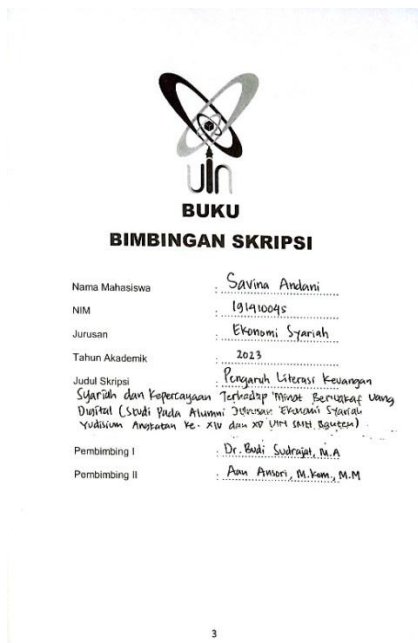 uin
BUKU
BIMBINGAN SKRIPSI
Nama Mahasiswa : Savina Andani
NIM : 191410045
Jurusan : Ekonomi Syariah
Tahun Akademik : 2023
Judul Skripsi : Pengaruh Literasi Keuangan
Syariah dan Kepercayaan Terhadap Minat Berwakaf Uang
Digital (Studi Pada Alumni Jurusan Ekonomi Syariah
Yudisium Angkatan Ke- XIV dan XV UIN SMH Banten)
Pembimbing I : Dr. Budi Sudrajat, M.A
Pembimbing II : Aan Ansori, M.Kom., M.M
3